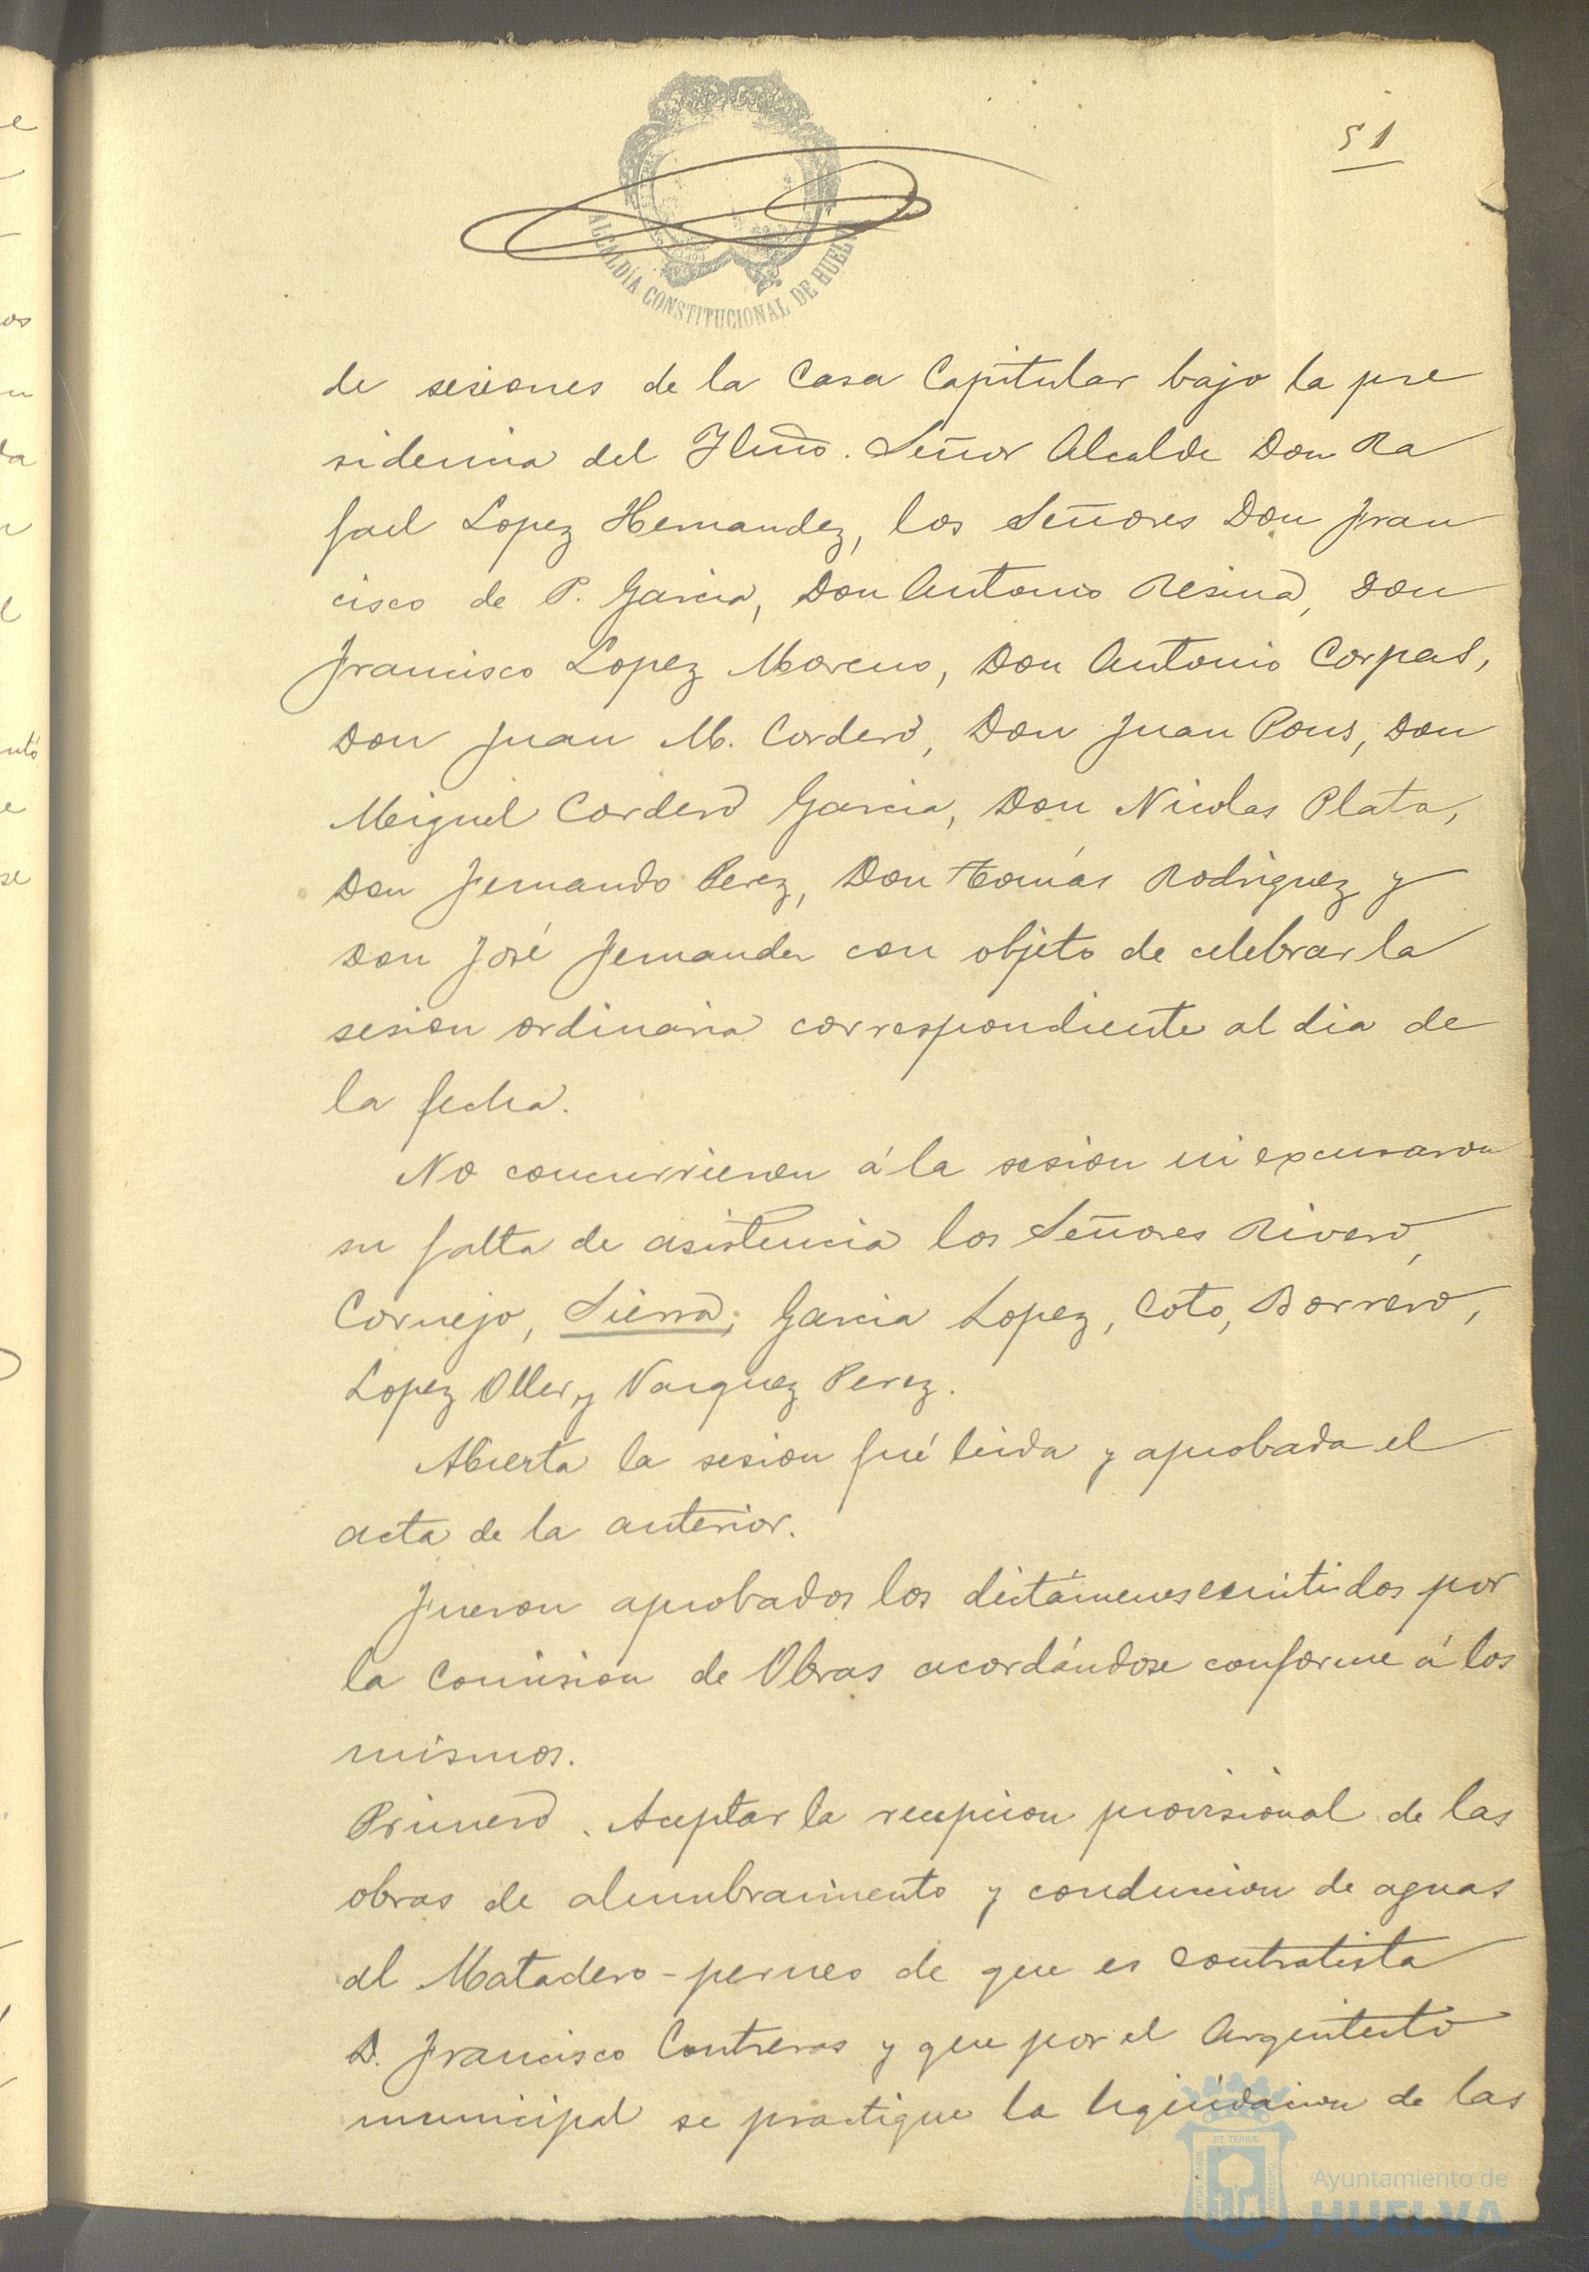 51
ALCALDÍA CONSTITUCIONAL DE HUELVA
de sesiones de la Casa Capitular bajo la pre
sidencia del Ylmo. Señor Alcalde Don Ra
fael Lopez Hernandez, los Señores Don Fran
cisco de P. Garcia, Don Antonio Resina, Don
Francisco Lopez Moreno, Don Antonio Corpas,
Don Juan M. Cordero, Don Juan Pons, Don
Miguel Cordero Garcia, Don Nicolas Plata,
Don Fernando Perez, Don Tomás Rodriguez y
Don José Fernandez con objeto de celebrar la
sesion ordinaria correspondiente al dia de
la fecha.
No concurrieron á la sesion ni excusaron
su falta de asistencia los Señores Rivero,
Cornejo, Sierra, Garcia Lopez, Coto, Borrero,
Lopez Oller, y Vazquez Perez.
Abierta la sesion fué leida y aprobada el
acta de la anterior.
Fueron aprobados los dictámenes emitidos por
la Comision de Obras acordándose conforme á los
mismos.
Primero. Aceptar la recepcion provisional de las
obras de alumbramiento y conduccion de aguas
al Matadero-perneo de que es contratista
D. Francisco Contreras y que por el Arquitecto
municipal se practique la liquidacion de las
Ayuntamiento de
HUELVA